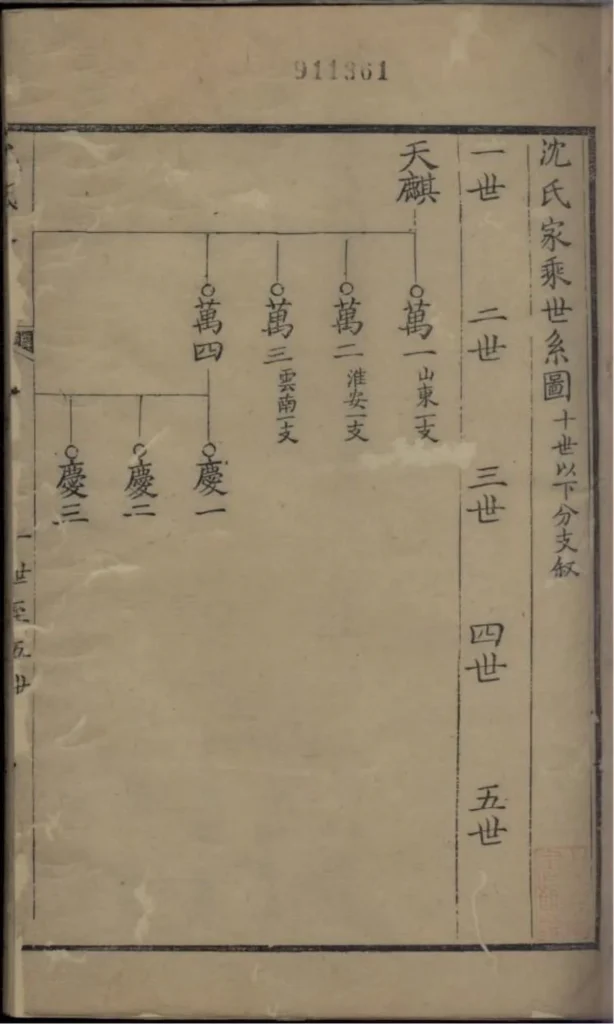 911361
沈氏家乘世系圖十世以下分支叙
一世
二世
三世
四世
五世
天麒
萬一山東一支
萬二淮安一支
萬三雲南一支
萬四
慶一
慶二
慶三
一世至五世